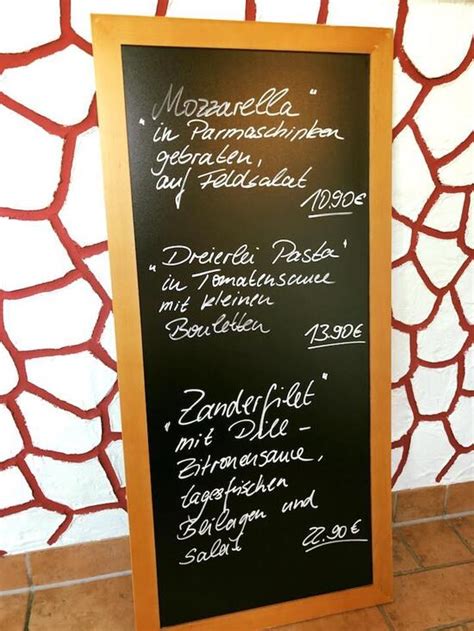 „Mozzarella"
in Parmaschinken
gebraten,
auf Feldsalat
10.90€
„Dreierlei Pasta"
in Tomatensauce
mit kleinen
Bouletten
13.90€
„Zanderfilet"
mit Dill-
Zitronensauce,
tagesfrischen
Beilagen und
Salat
22.90€